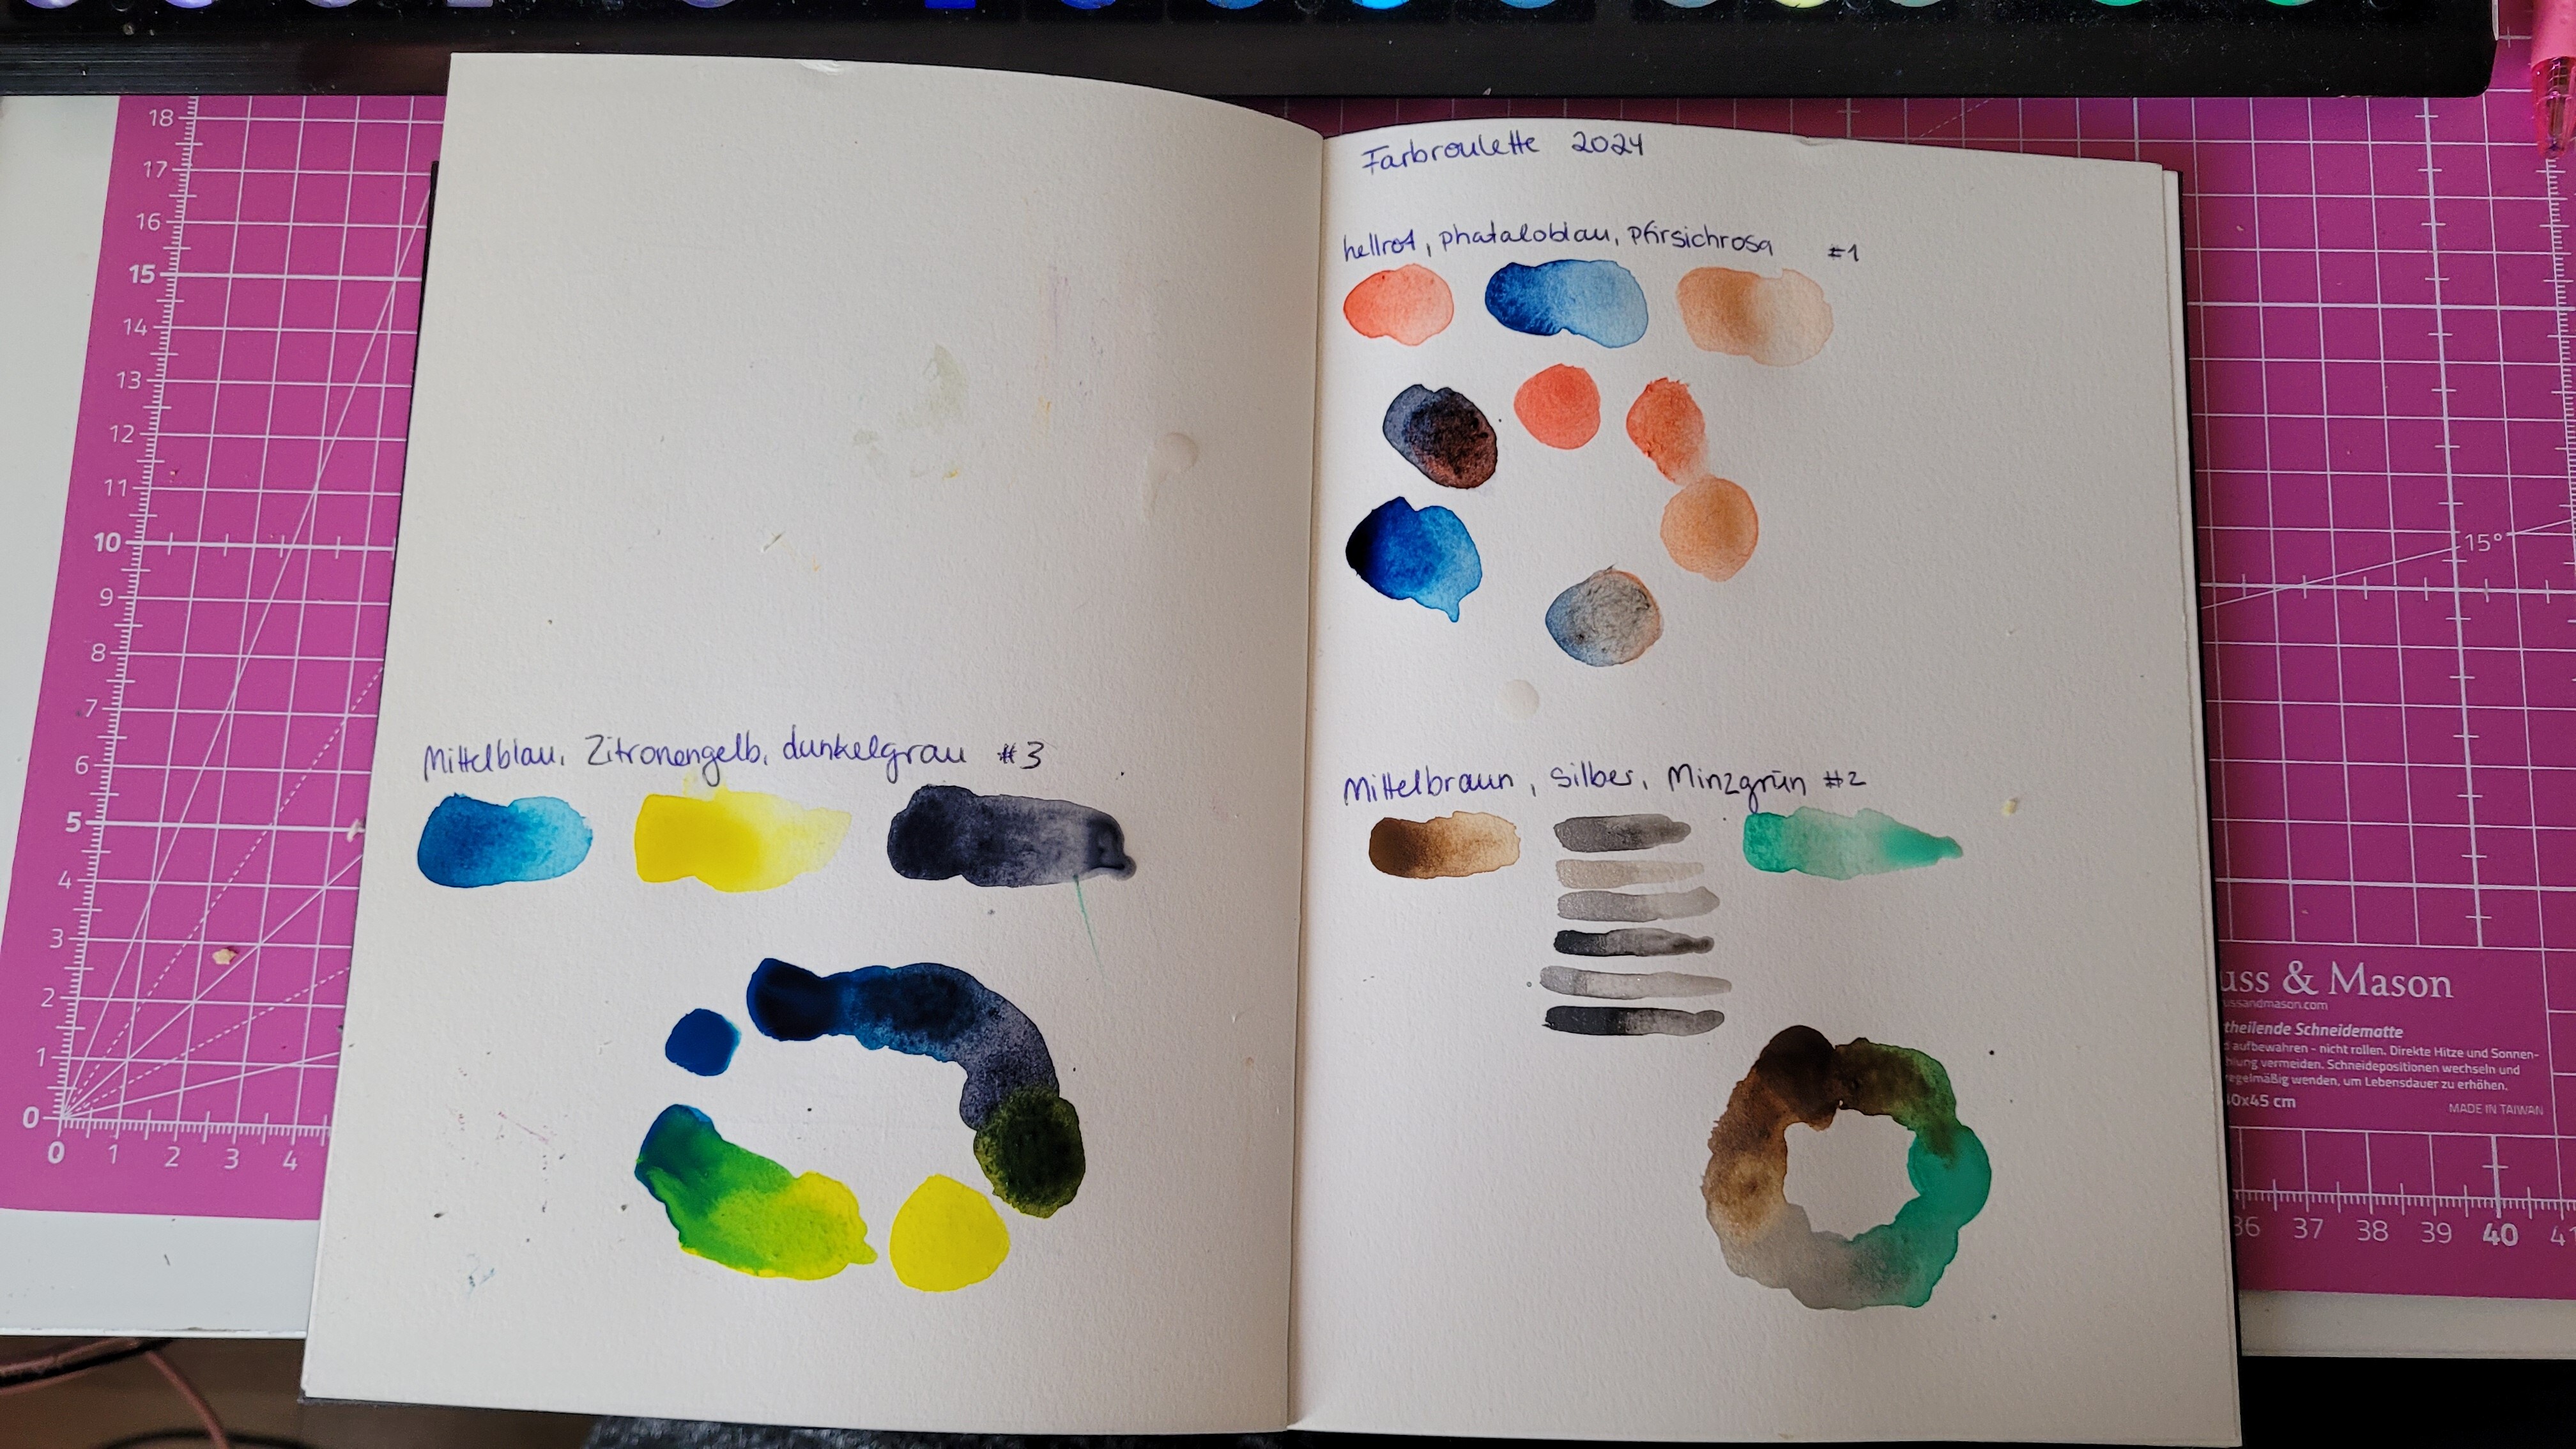 Farbroulette 2024
hellrot, phataloblau, Pfirsichrosa #1
Mittelbraun, Silber, Minzgrün #2
Mittelblau, Zitronengelb, dunkelgrau #3
18
17
16
15
14
13
12
11
10
9
8
7
6
5
4
3
2
1
0
0 1 2 3 4
15°
uss & Mason
ussandmason.com
theilende Schneidematte
aufbewahren - nicht rollen. Direkte Hitze und Sonnen-
vermeiden. Schneidepositionen wechseln und
regelmäßig wenden, um Lebensdauer zu erhöhen.
0x45 cm
MADE IN TAIWAN
36 37 38 39 40 41